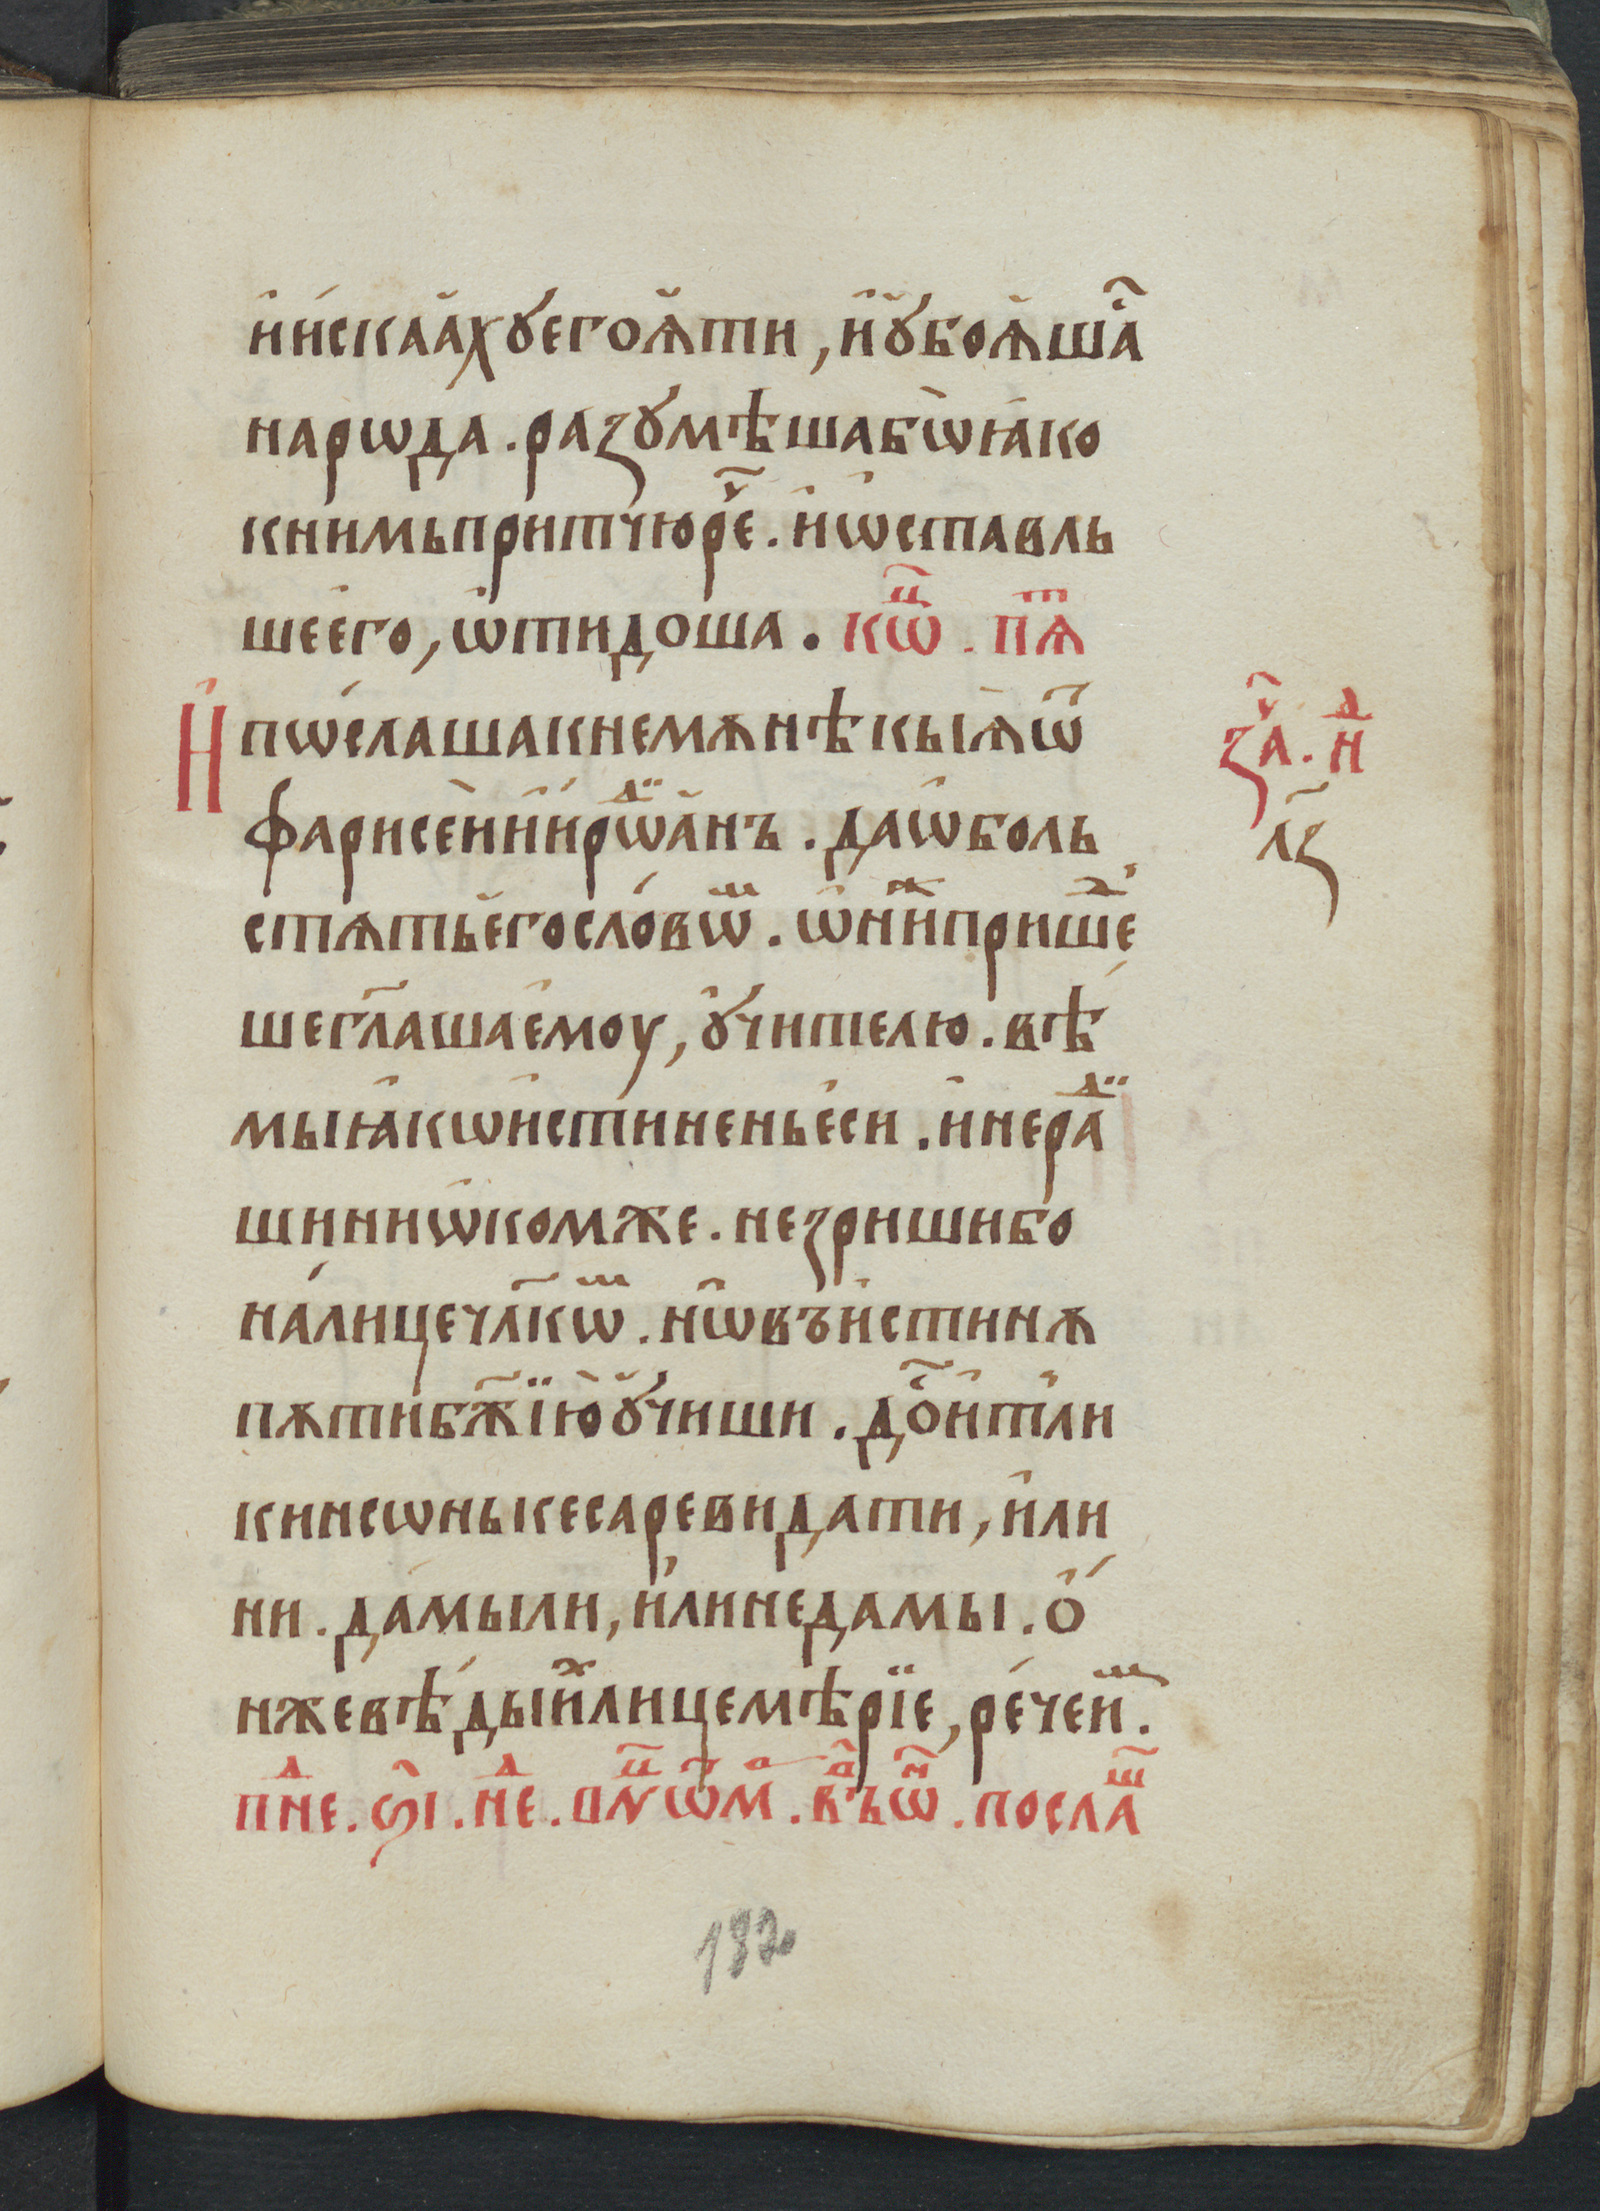 и҆и҆скаа҆хꙋегоꙗ҆ти, и҆ꙋ҆боꙗ҆шⷭ҇а
нарѡда. разꙋмѣшабѡꙗ҆ко
книмьпритчюрⷱ҇е. и҆ѡ҆ставль
шеего, ѿидоша. кѡⷰ҇. пѧⷮ
И҆ посⷧашакнемѫнѣкыѧѿ
фарисеи҆и҆и҆рѡⷣїа҆нъ. даѡ҆боль
стѧтьегосло́вѡⷨ. ѡ҆ниⷤприше́ⷣ
шегл҃ашаемоу, ꙋ҆чителю. вѣ
мыꙗ҆кѡи҆сти́неньеси. и҆нераⷣї
шиниѡ҆комже. незришибо
на́лицечл҃кѡⷨ. нѡ҆въи҆стинѫ
пѫтибж҃їюꙋ҆чиши. дⷭ҇ои́тли
кинсѡнькесаревидати, и҆ли
ни. да́мыли, и҆линедамы. ѻ҆́
нжевѣ́дыиⷯлицемѣрїе, ре́чеиⷨ.
пⷣне. ѕ҃і. нⷣе. по н҃ѡⷰ҇м. въѡⷩ҇. послаⷲ҇
заⷱ҇. нⷣ
л҃з
132